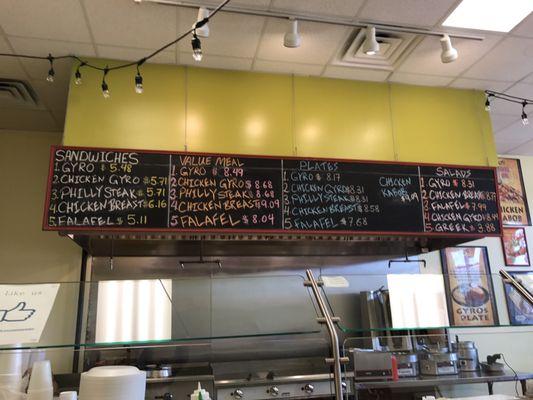 SANDWICHES
1. GYRO $ 5.48
2. CHICKEN GYRO $ 5.71
3. PHILLY STEAK $ 5.71
4. CHICKEN BREAST $ 6.16
5. FALAFEL $ 5.11
VALUE MEAL
1. GYRO $ 8.49
2. CHICKEN GYRO $ 8.68
3. PHILLY STEAK $ 8.68
4. CHICKEN BREAST $ 9.09
5. FALAFEL $ 8.04
PLATES
1. GYRO $ 8.17
2. CHICKEN GYRO $ 8.31
3. PHILLY STEAK $ 8.31
4. CHICKEN BREAST $ 8.58
5. FALAFEL $ 7.68
CHICKEN
KABOB
SALADS
1. GYRO $ 8.31
2. CHICKEN
3. FALAFEL $ 7.99
4. CHICKEN GYRO
5. GREEK $ 3.88
CHICKEN
GYROS
PLATE